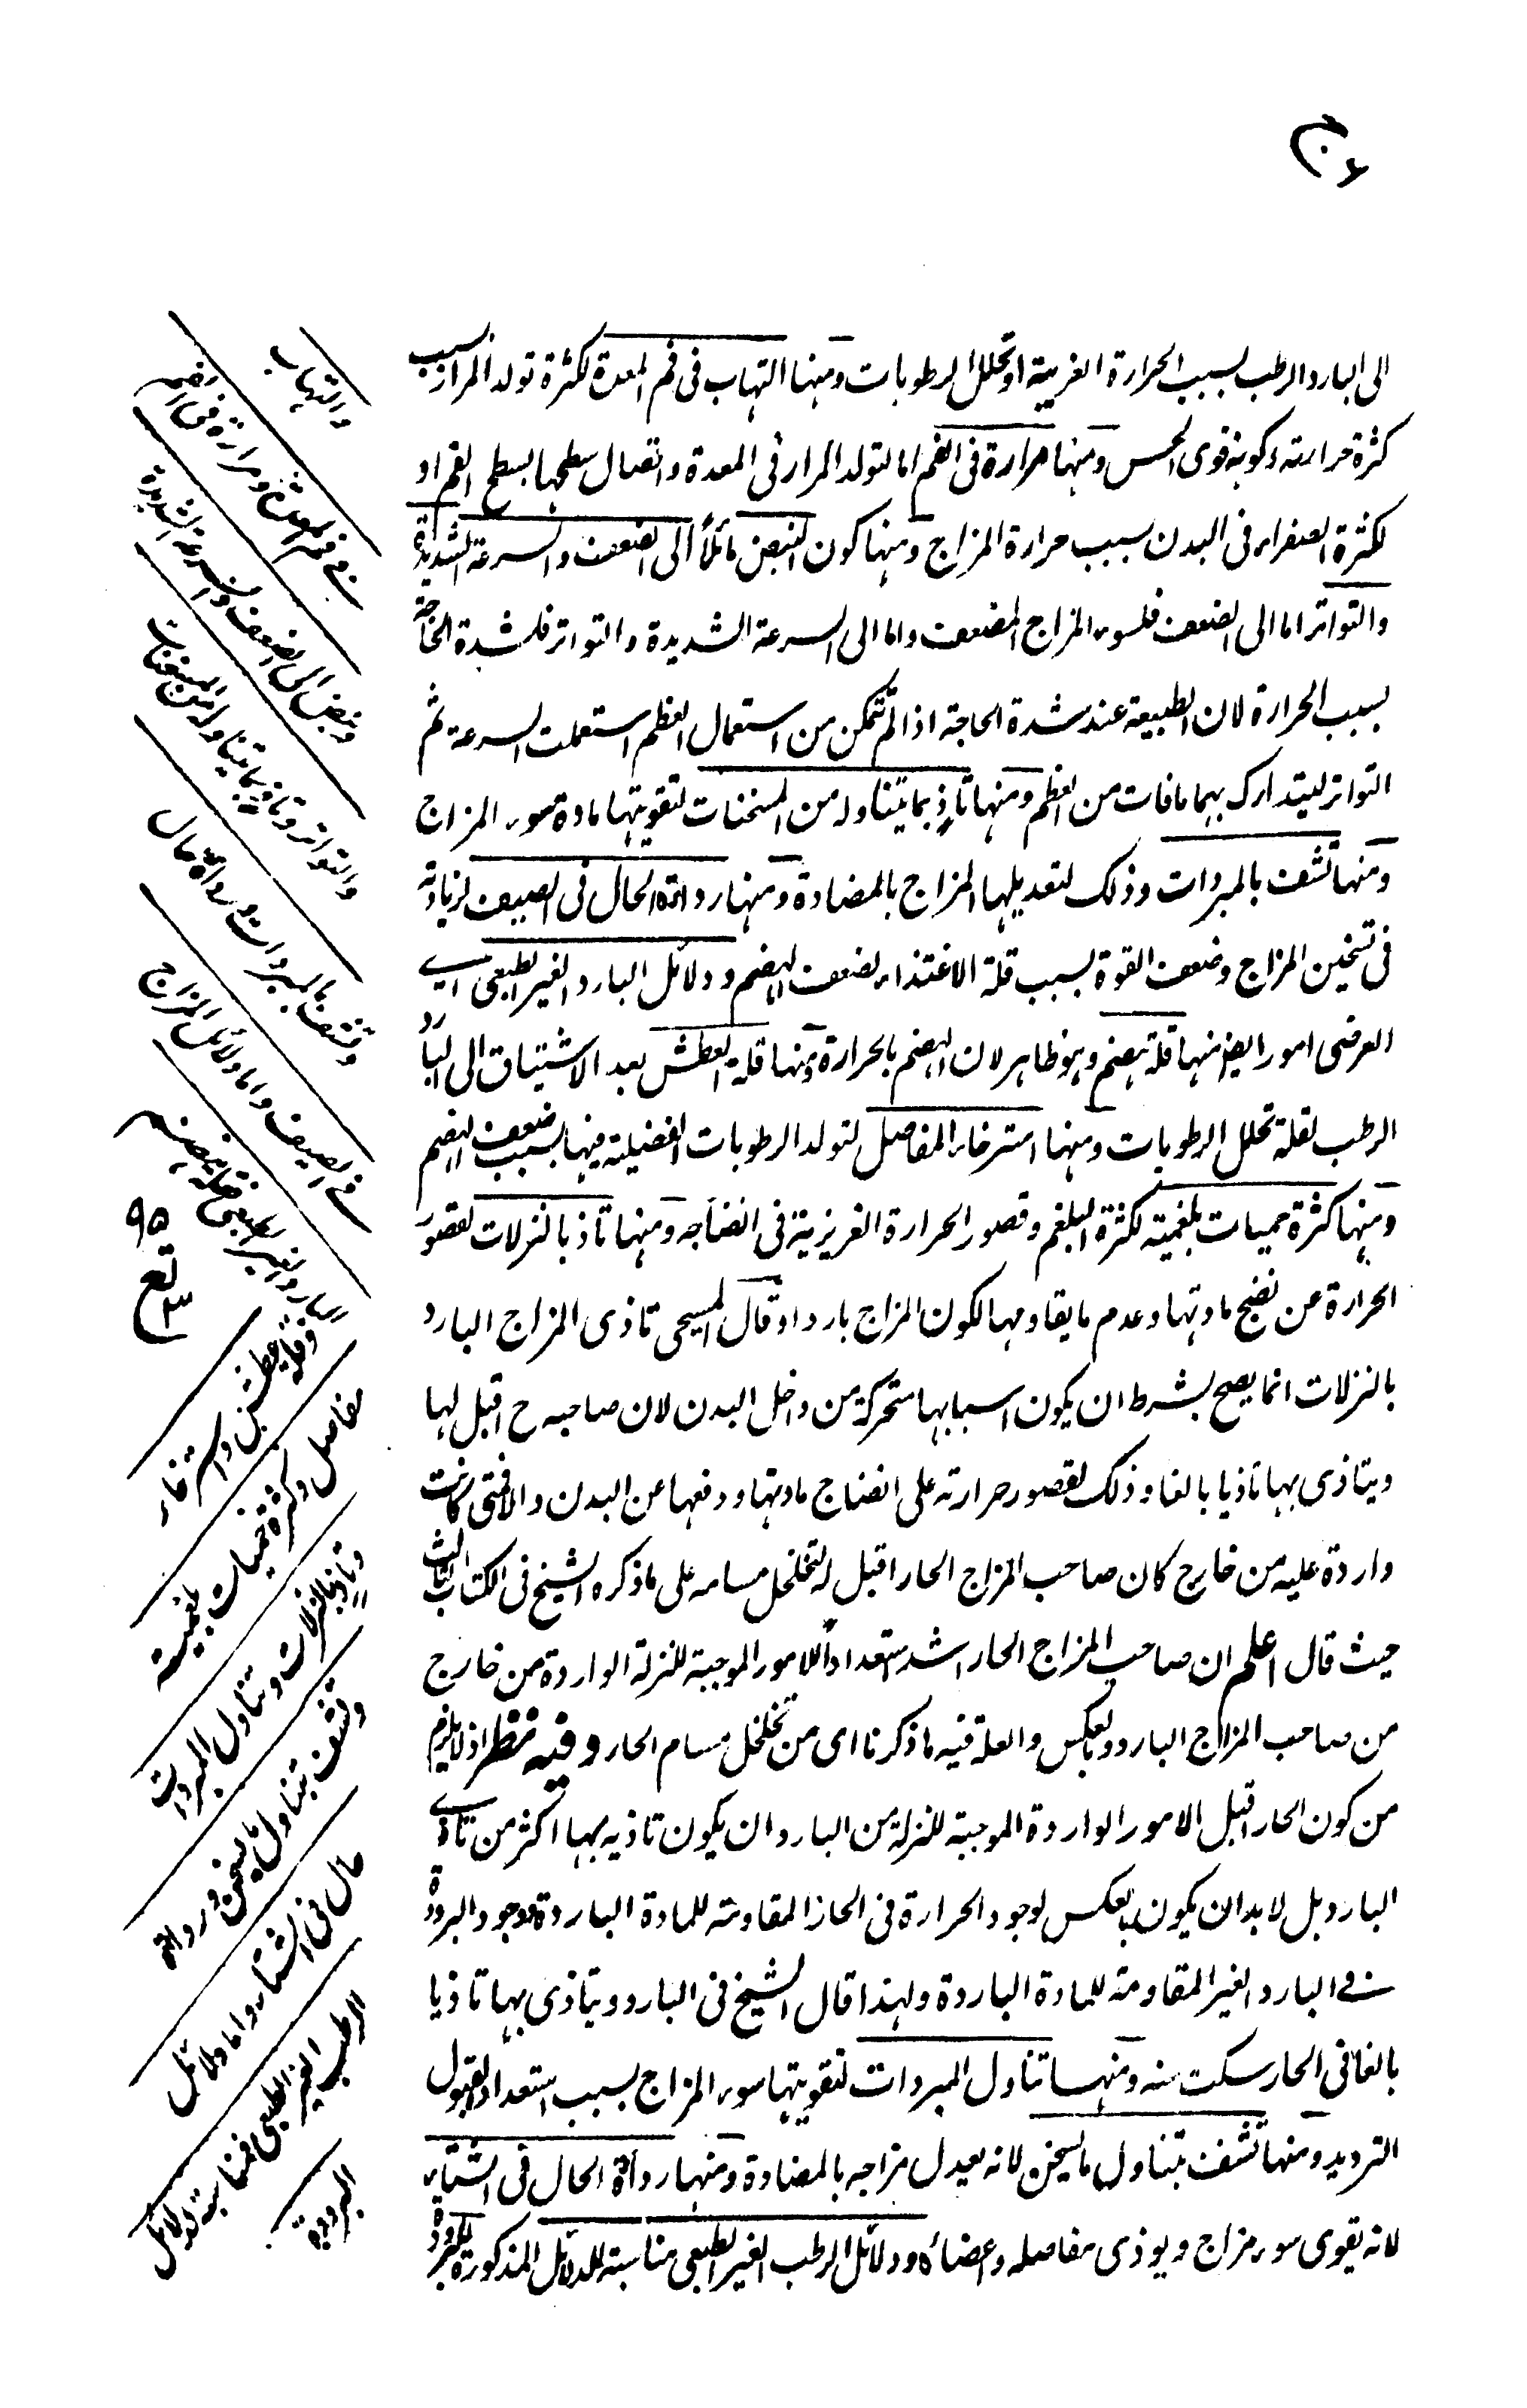 الى البارد الرطب بسبب الحرارة الغريبة او تحلل الرطوبات ومنها التهاب فى فم المعدة لكثرة تولد المرار بسبب
كثرة حرارته وكونه قوى الحس ومنها مرارة فى الفم اما لتولد المرار فى المعدة واتصال سطحها بسطح الفم او
لكثرة الصفراء فى البدن بسبب حرارة المزاج ومنها كون النبض مائلاً الى الضعف والسرعة الشديدة
والتواتر اما الى الضعف فلسوء المزاج المضعف واما الى السرعة الشديدة والتواتر فلشدة الحاجة
بسبب الحرارة لان الطبيعة عند شدة الحاجة اذا لم تتمكن من استعمال العظم استعملت السرعة ثم
التواتر ليتدارك بهما ما فات من العظم ومنها تاذٍ بما يتناوله من المسخنات لتقويتها مادة سوء المزاج
ومنها تشف بالمبردات وذلك لتعديلها المزاج بالمضادة ومنها رداءة الحال فى الصيف لزيادته
فى تسخين المزاج وضعف القوة بسبب قلة الاغتذاء لضعف الهضم ودلائل البارد الغير الطبعى اے
العرضى امور ايضا منها قلة هضم وهو ظاهر لان الهضم بالحرارة ومنها قلة العطش بعد الاشتياق الى البارد
الرطب لقلة تحلل الرطوبات ومنها استرخاء المفاصل لتولد الرطوبات الفضلية فيها بسبب ضعف الهضم
ومنها كثرة حميات بلغمية لكثرة البلغم وقصور الحرارة الغريزية فى انضاجه ومنها تاذ بالنزلات لقصور
الحرارة عن نضج مادتها وعدم ما يقاومها لكون المزاج باردا وقال المسيحى تاذى المزاج البارد
بالنزلات انما يصح بشرط ان يكون اسبابها متحركة من داخل البدن لان صاحبه ح اقبل لها
ويتاذى بها تاذيا بالغا وذلك لقصور حرارته على انضاج مادتها ودفعها عن البدن والا فمتى كانت
واردة عليه من خارج كان صاحب المزاج الحار اقبل له لتخلخل مسامه على ما ذكره الشيخ فى الكتاب الثالث
حيث قال اعلم ان صاحب المزاج الحار اشد استعداداً للامور الموجبة للنزلة الواردة من خارج
من صاحب المزاج البارد وبالعكس والعلة فيه ما ذكرنا اى من تخلخل مسام الحار وفيه نظر اذ لا يلزم
من كون الحار اقبل الامور الواردة الموجبة للنزلة من البارد ان يكون تاذيه بها اكثر من تاذے
البارد بل لا بد ان يكون بالعكس لوجود الحرارة فى الحار المقاومة للمادة الباردة ووجود البرودة
فے البارد الغير المقاومة للمادة الباردة ولهذا قال الشيخ فى البارد ويتاذى بها تاذيا
بالغا وفى الحار سكت منه ومنها تناول المبردات لتقويتها سوء المزاج بسبب استعداد القبول
التردد ومنها تشف بتناول ما يسخن لانه يعدل مزاجه بالمضادة ومنها رداءة الحال فى الشتاء
لانه يقوى سوء مزاج ويوذى مفاصله واعضائه ودلائل الرطب الغير الطبعى مناسبة للدلائل المذكورة للبرودة
والتهاب
فى فم المعدة ومرارة فى الفم
ونبض الى الضعف والسرعة الشديدة
والتواتر وتاذ بما يتناوله من المسخنات
وتشف بالمبردات ورداءة حال
فى الصيف واما دلائل المزاج
البارد الغير الطبعى فقلة هضم
٩٥
وقلة عطش واسترخاء
مفاصل وكثرة حميات بلغمية
وتاذ بالنزلات وتناول المبردات
وتشف بتناول ما يسخن ورداءة
حال فى الشتاء واما دلائل
الرطب الغير الطبعى فمناسبة لدلائل
البرودة